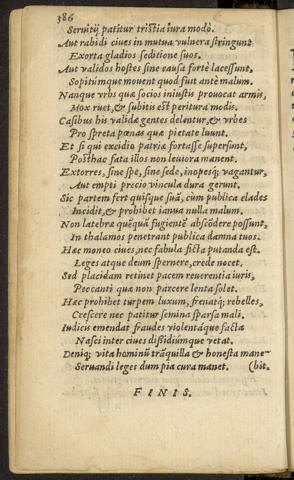 386
Seruitij patitur tristia iura modò.
Aut rabidi ciues in mutua vulnera stringunt
Exorta gladios seditione suos.
Aut validos hostes sine causa fortè lacessunt,
Sopitúmque mouent quod fuit antè malum.
Nanque vrbs quæ socios iniustis prouocat armis,
Mox ruet, & subitis est peritura modis.
Casibus his validæ gentes delentur, & vrbes
Pro spreta pœnas quæ pietate luunt.
Et si qui excidio patriæ fortasse supersunt,
Posthac fata illos non leuiora manent.
Extorres, sine spe, sine sede, inopesq; vagantur,
Aut empti precio vincula dura gerunt.
Sic partem fert quisque suã, cùm publica clades
Incidit, & prohibet ianua nulla malum.
Non latebræ quẽquã fugientẽ abscõdere possunt,
In thalamos penetrant publica damna tuos.
Hæc moneo ciues, nec fabula ficta putanda est.
Leges atque deum spernere, crede nocet.
Sed placidam retinet pacem reuerentia iuris,
Peccanti quæ non parcere lenta solet.
Hæc prohibet turpem luxum, frenatq; rebelles,
Crescere nec patitur semina sparsa mali.
Iudicis emendat fraudes violentáque facta
Nasci inter ciues dissidiúmque vetat.
Deniq; vita hominũ trãquilla & honesta mane-
Seruandi leges dum pia cura manet. (bit.
FINIS.